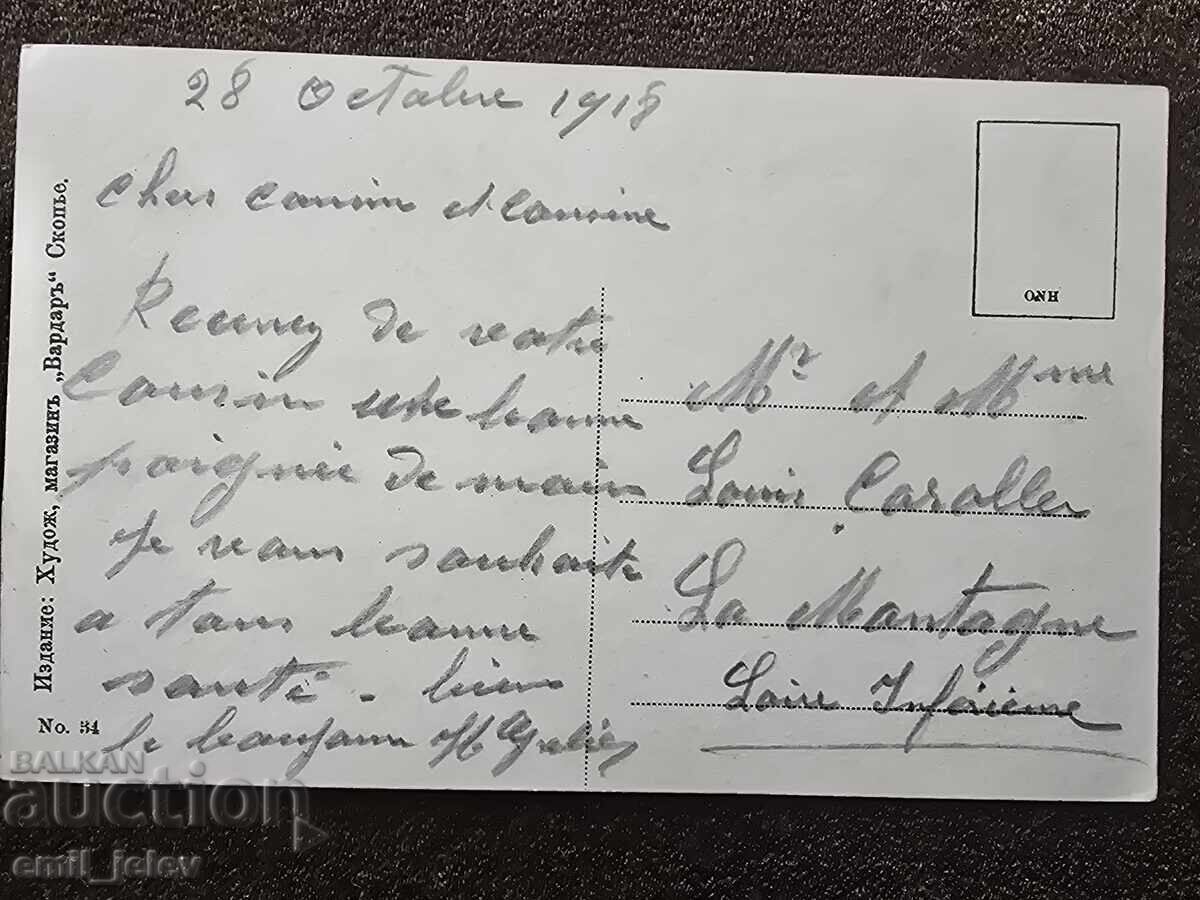 28 Octobre 1918
Chers Cousin et Cousine
Recevez de votre
Cousin une bonne
poignée de main
Je vous souhaite
a tous bonne
santé - bien
le bonjour
Mr et Mme
Louis Caroller
La Montagne
Loire Inférieure
Издание: Худож, магазинъ „Вардаръ" Скопье.
No. 34
ОИН
BALKAN
auction
emil_jelev